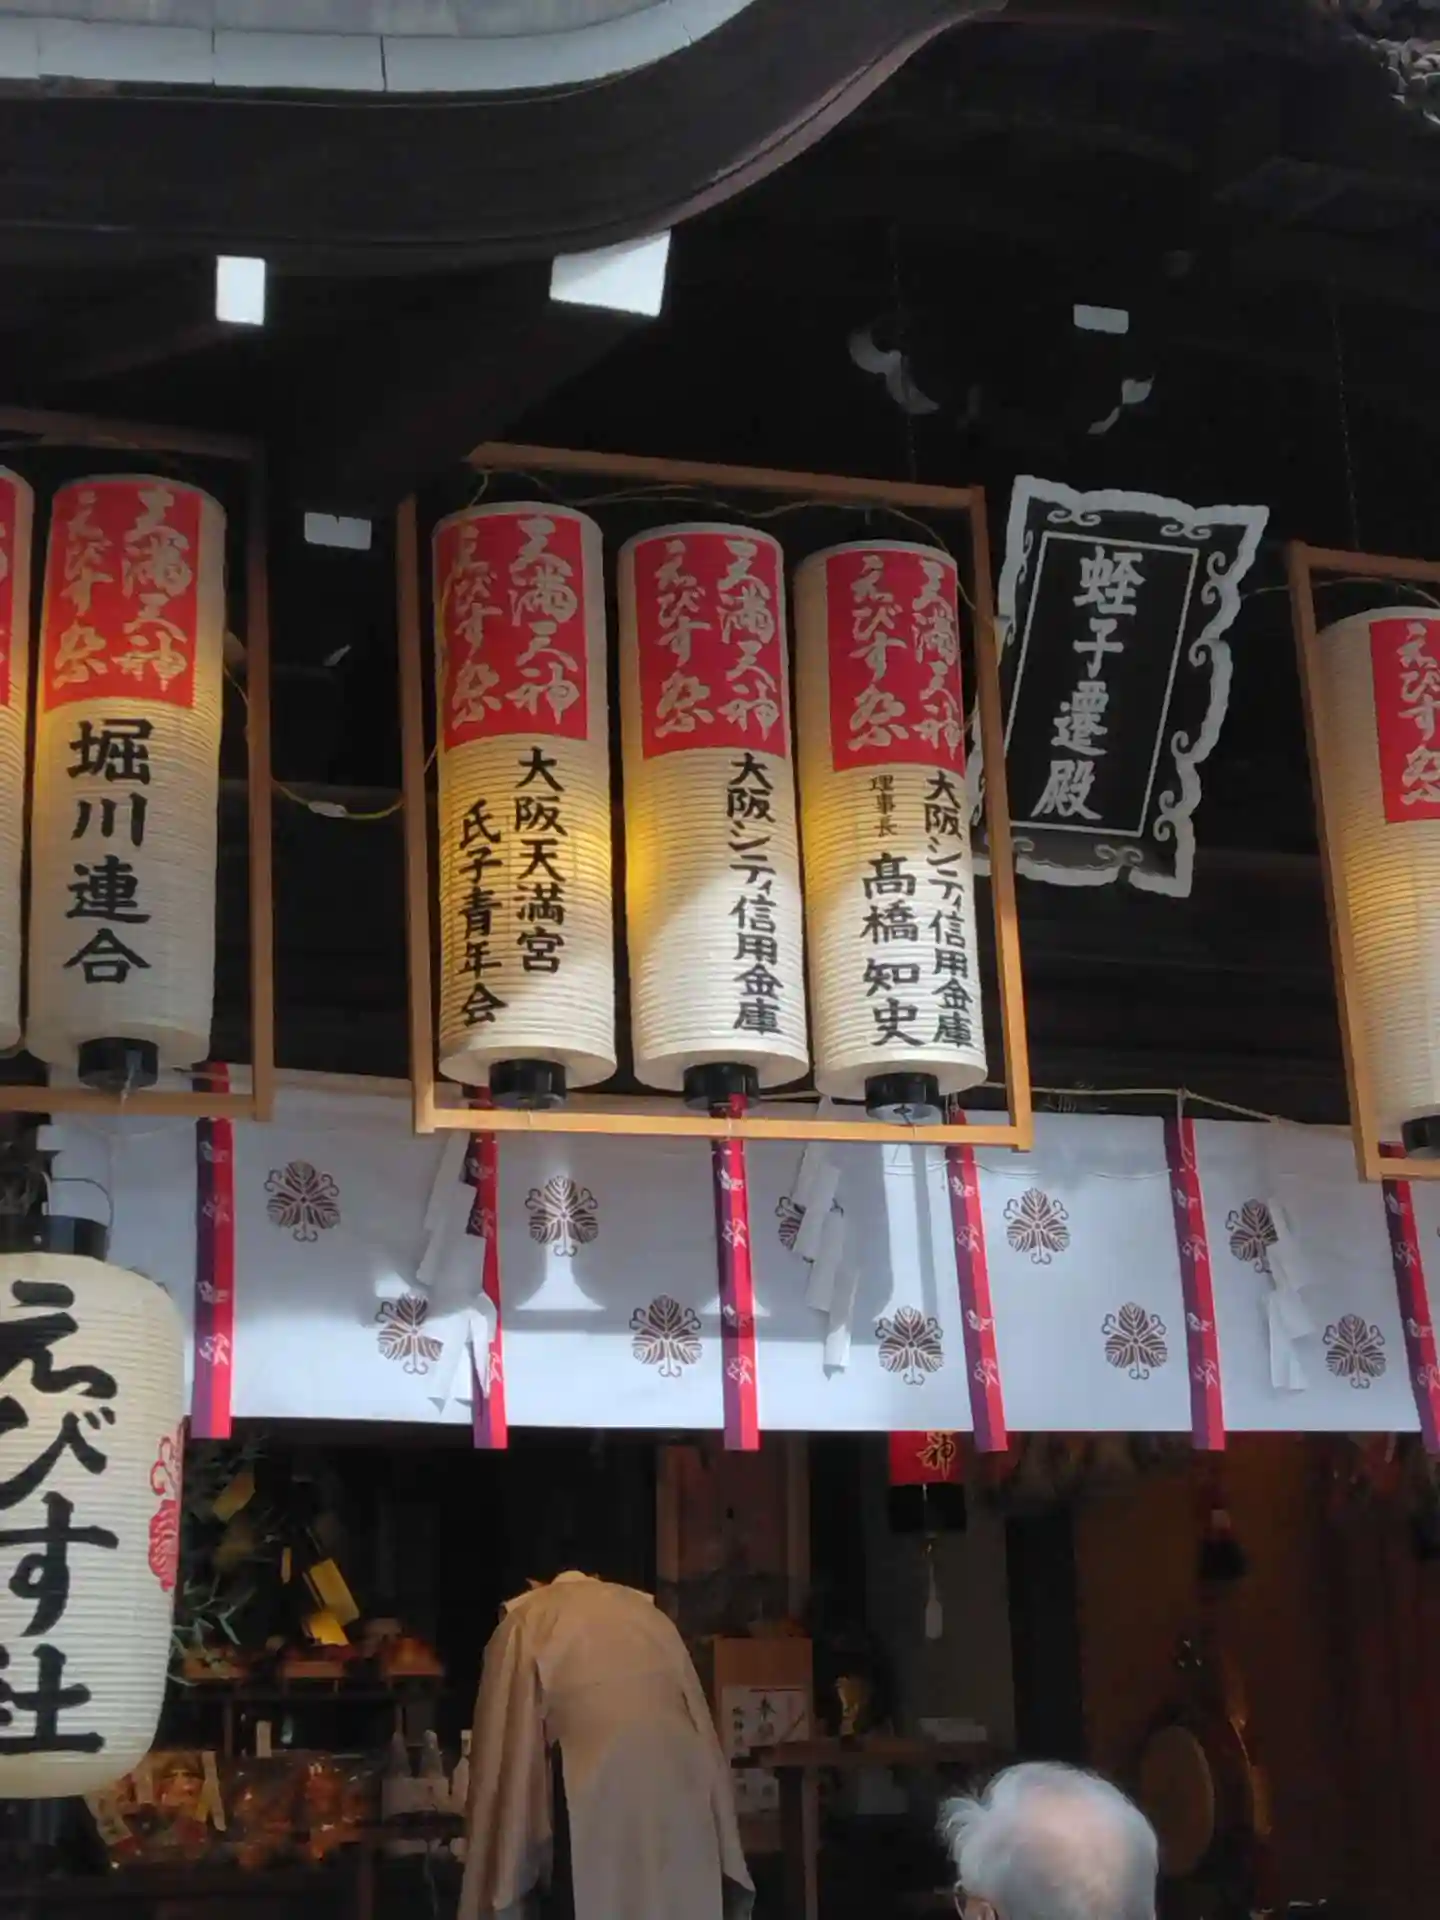 天満天神
えびす祭
堀川連合
天満天神
えびす祭
大阪天満宮
氏子青年会
天満天神
えびす祭
大阪シティ信用金庫
天満天神
えびす祭
大阪シティ信用金庫
理事長 髙橋知史
蛭子遷殿
えびす祭
えびす社
神